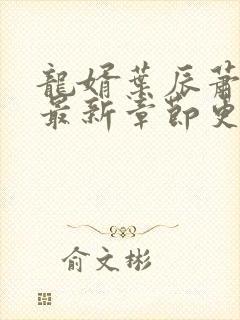 龍婿葉辰蕭
最新章節更
俞文彬